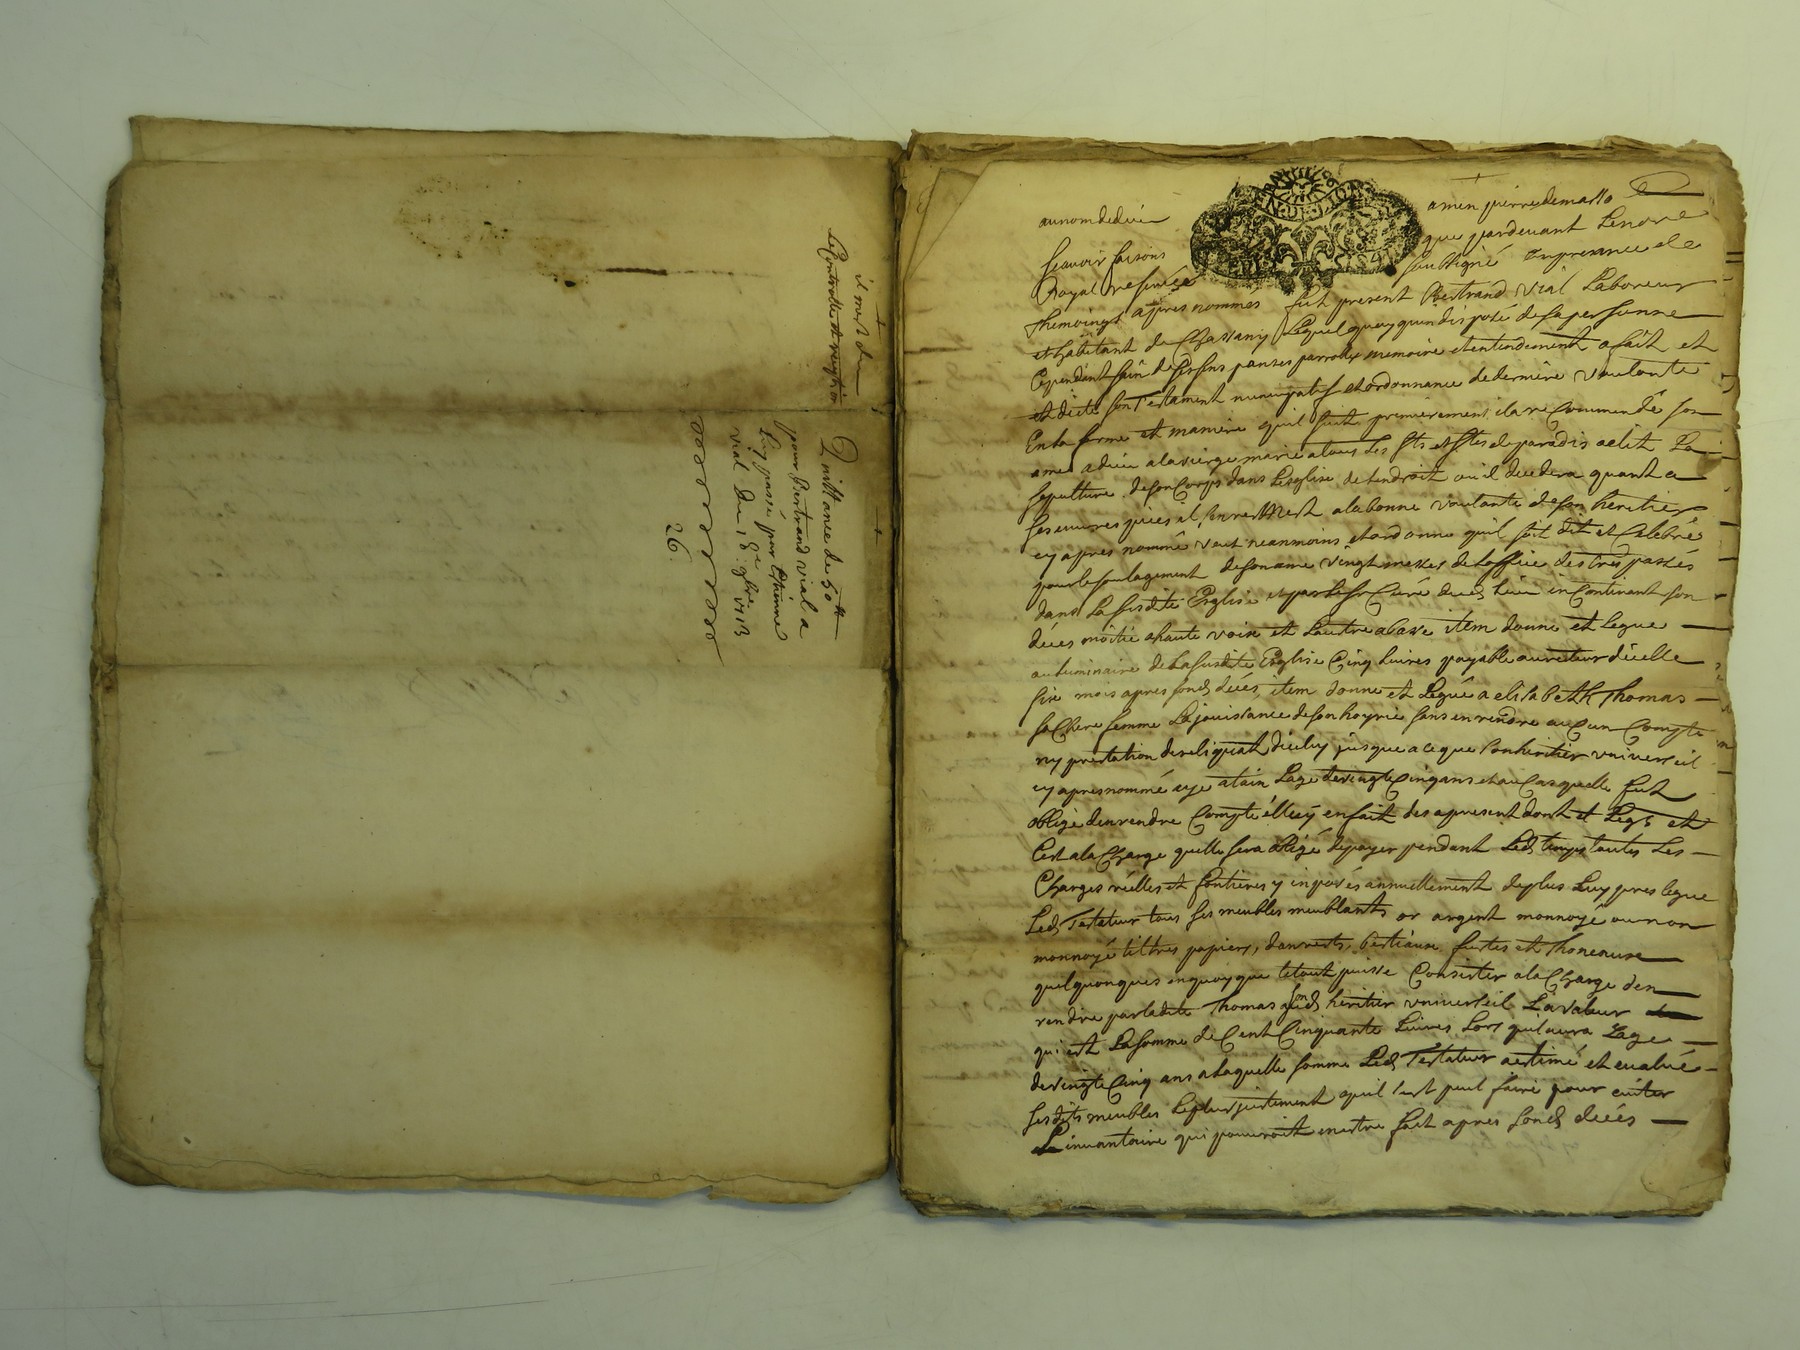 il m'est du
le Controlle et reception
Quittance de 50 ₶
pour Bertrand vial a
luy passé par Ethienne
vial Du 18e 9bre 1713
26.
au nom de dieu amen pierre demasso
scavoir faisons que pardevant Le notre
Royal reservé soubsigné en presence de
themoings apres nommés fut present Bertrand vial Laboureur
et habitant de Chassany Lequel quoy quindisposé de sa personne
Cependant sain de ses sens panses parrolle memoire et entendement a fait et
et dicté son Testament nuncupatif et ordonnance de derniere voulonte
En la forme et maniere quil suit premierement il a recommendé son
ame a dieu a la vierge marie a tous les sts et stes de paradis a elit La
sepulture de son Corps dans Lesglise de Lendroit ou il decedera quant a
ses euvres pies il sen remest a la bonne voulonte de son heritier
cy apres nommé veut neanmoins et ordonne quil soit dit et Celebré
pour le soulagement de son ame vingt messes de Loffice des trespassés
dans La susdite Esglise et par le sr Curé dud lieu incontinant son
décés moitié a haute voix et Lautre a basse item donne et Legue
au Luminaire de La susdite Esglise Cinq Livres payable au recteur dicelle
six mois apres sond décés item donne et Legué a elisabeth Thomas
sa Chere femme La jouissance de son hoyrie sans en rendre aucun Compte
ny prestation de reliquat dicelluy jusque a ce que son heritier universel
cy apres nommé aye atain Lage de vingt Cinq ans et au Cas quelle fut
obligé den rendre Compte il luy en fait des apresent dont et Legs et
Cest a la Charge quelle sera obligé de payer pendant Led temps toutes Les
Charges réélles et fontieres y imposés annuellement de plus Luy prelegue
Led Testateur tous ses meubles meublants or argent monnoyé ou non
monnoyé tiltres papiers, danrées, Bestiaux fustes et Thoneaux
quelquonques en quoy que le tout puisse Consister a la Charge den
rendre par ladite Thomas a sond heritier universel La valeur
qui est La somme de Cent Cinquante Livres Lors quil aura Lage
de vingt Cinq ans a Laquelle somme Led Testateur a estimé et evalué
ses dits meubles Le plus justement quil s'est peut faire pour eviter
Linvantaire qui pouvroit en estre fait apres sond décés